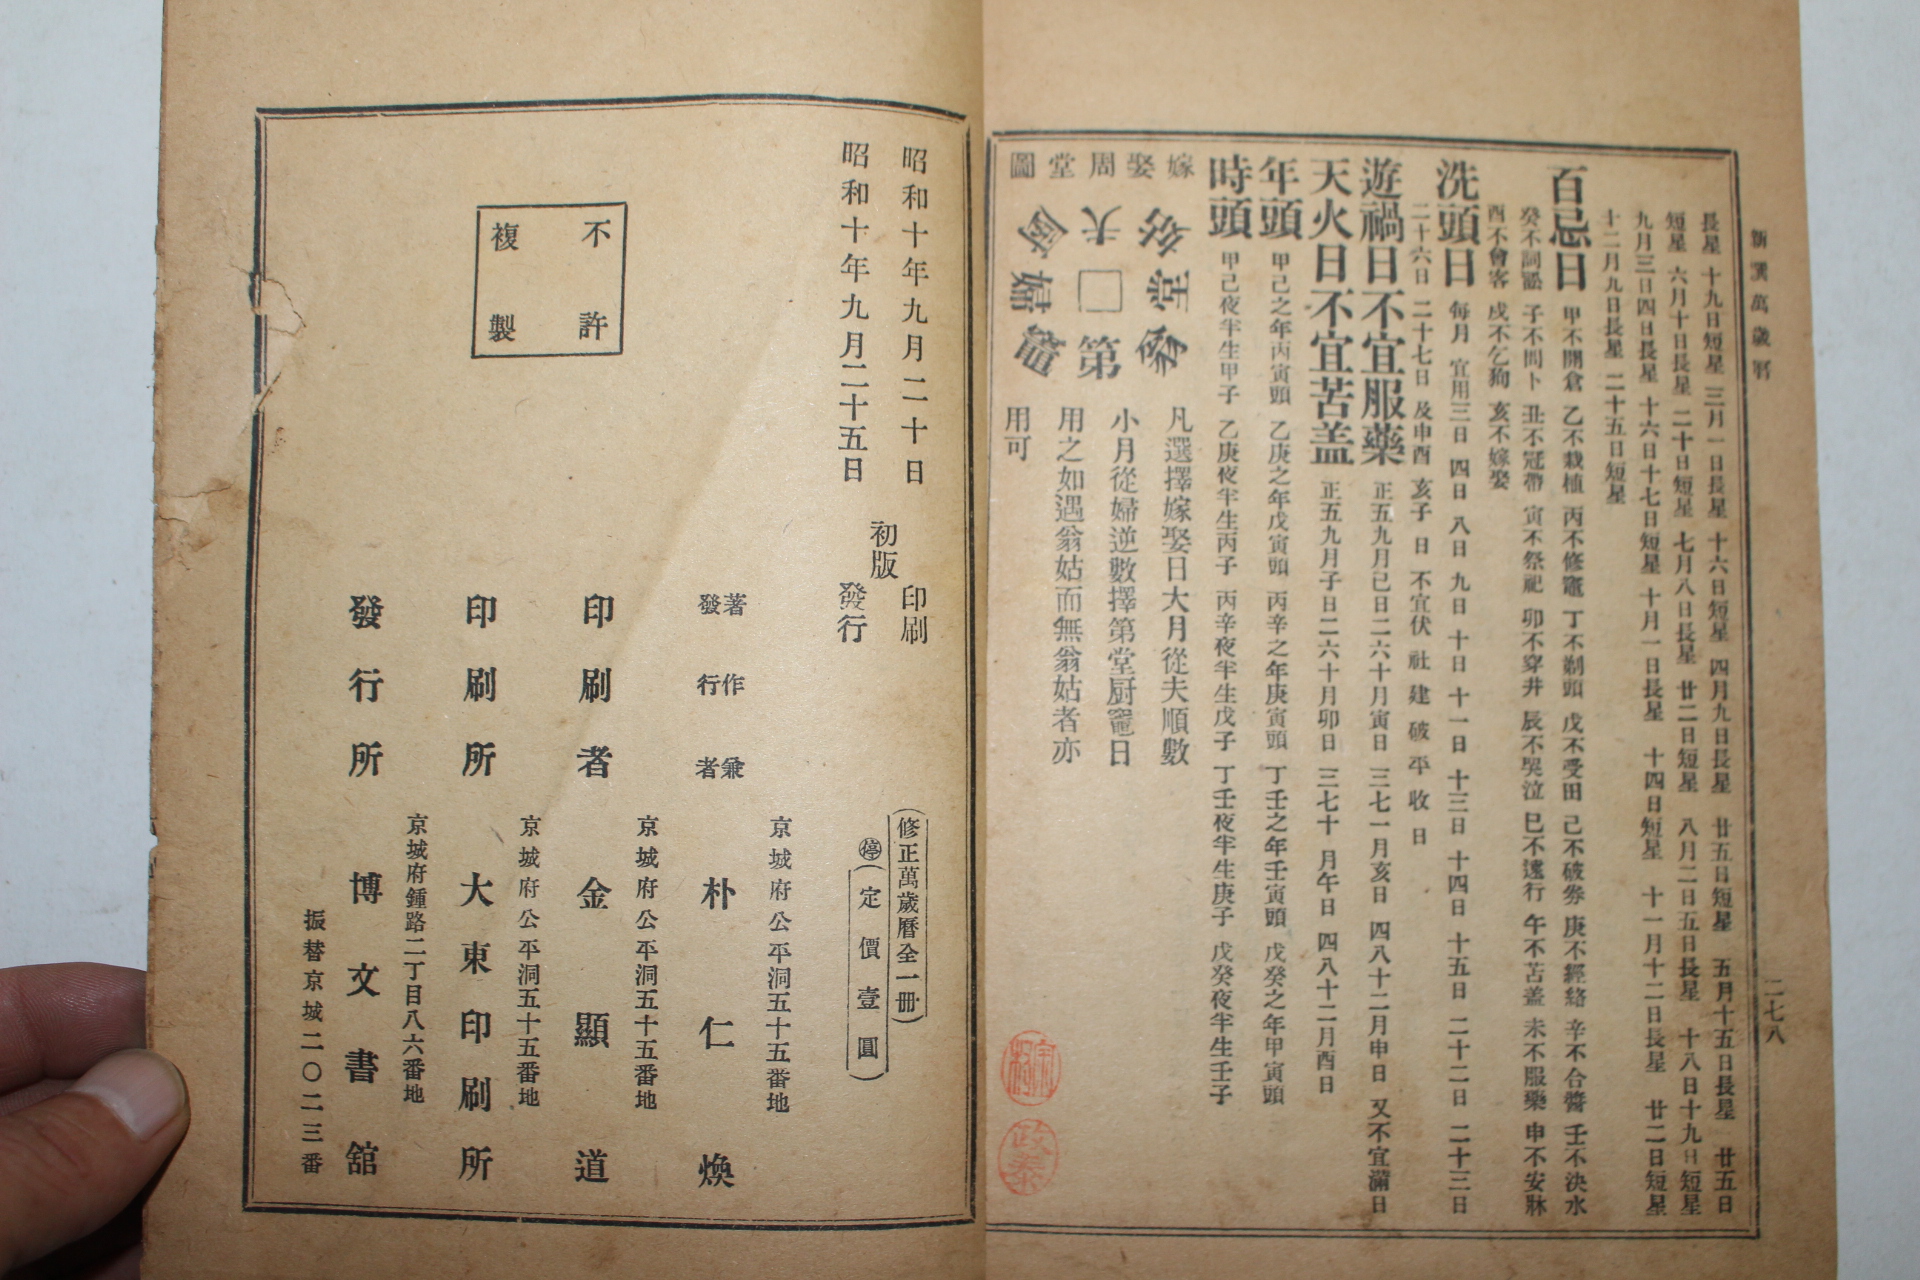 新撰萬歲曆
二七八
長星 十九日短星 三月一日長星 十六日短星 四月九日長星 廿五日短星 五月十五日長星 廿五日
短星 六月十日長星 二十日短星 七月八日長星 廿二日短星 八月二日五日長星 十八日十九日短星
九月三日四日長星 十六日十七日短星 十月一日長星 十四日短星 十一月十二日長星 廿二日短星
十二月九日長星 二十五日短星
百忌日 甲不開倉 乙不栽植 丙不修竈 丁不剃頭 戊不受田 己不破券 庚不經絡 辛不合醬 壬不決水
癸不詞訟 子不問卜 丑不冠帶 寅不祭祀 卯不穿井 辰不哭泣 巳不遠行 午不苫盖 未不服藥 申不安牀
酉不會客 戌不乞狗 亥不嫁娶
洗頭日 每月 宜用三日 四日 八日 九日 十日 十一日 十三日 十四日 十五日 二十二日 二十三日
二十六日 二十七日 及申酉 亥子 日 不宜伏 社 建 破 平 收 日
遊禍日不宜服藥 正五九月巳日二六十月寅日 三七一月亥日 四八十二月申日 又不宜滿日
天火日不宜苫盖 正五九月子日二六十月卯日 三七十一月午日 四八十二月酉日
年頭 甲己之年丙寅頭 乙庚之年戊寅頭 丙辛之年庚寅頭 丁壬之年壬寅頭 戊癸之年甲寅頭
時頭 甲己夜半生甲子 乙庚夜半生丙子 丙辛夜半生戊子 丁壬夜半生庚子 戊癸夜半生壬子
嫁娶周堂圖
姑 堂 翁
夫 第
婦 竈
凡選擇嫁娶日大月從夫順數
小月從婦逆數擇第堂厨竈日
用之如遇翁姑而無翁姑者亦
用可
昭和十年九月二十日 初版 印刷
昭和十年九月二十五日 發行
不許
複製
(修正萬歲曆全一冊)
(定價壹圓)
京城府公平洞五十五番地
著作兼
發行者 朴仁煥
京城府公平洞五十五番地
印刷者 金顯道
京城府公平洞五十五番地
印刷所 大東印刷所
京城府鍾路二丁目八六番地
發行所 博文書舘
振替京城二〇二三番